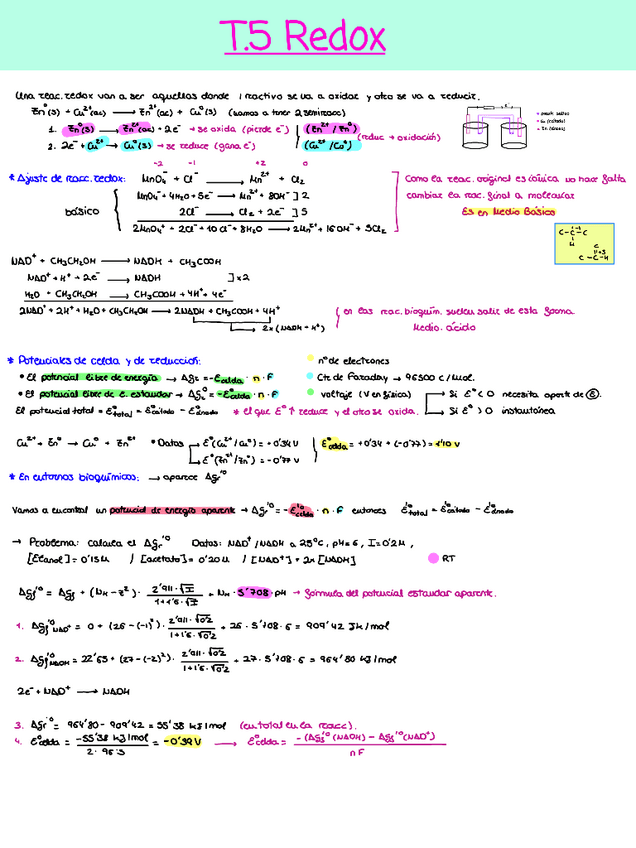 T.5 Redox
Una reac. redox van a ser aquellas donde 1 reactivo se va a oxidar y otro se va a reducir.
Zn⁰(s) + Cu²⁺(ac) ⟶ Zn²⁺(ac) + Cu⁰(s) (vamos a tener 2 semireacc)
1. Zn⁰(s) ⟶ Zn²⁺(ac) + 2e⁻ → se oxida (pierde e⁻) (Zn²⁺/Zn⁰)
2. 2e⁻ + Cu²⁺ → Cu⁰(s) → se reduce (gana e⁻) (Cu²⁺/Cu⁰) (reduc → oxidación)
-2 -1 +2 0
* Ajuste de reacc. redox: MnO₄⁻ + Cl⁻ ⟶ Mn²⁺ + Cl₂
básico
MnO₄⁻ + 4H₂O + 5e⁻ ⟶ Mn²⁺ + 8OH⁻ ] 2
2Cl⁻ ⟶ Cl₂ + 2e⁻ ] 5
2MnO₄⁻ + 2Cl⁻ + 10Cl⁻ + 8H₂O ⟶ 2Mn²⁺ + 16OH⁻ + 5Cl₂
Como la reac. original es iónica no hace falta
cambiar la reac. final a molecular
Es en Medio Básico
NAD⁺ + CH₃CH₂OH ⟶ NADH + CH₃COOH
NAD⁺ + H⁺ + 2e⁻ ⟶ NADH ] x2
H₂O + CH₃CH₂OH ⟶ CH₃COOH + 4H⁺ + 4e⁻
2NAD⁺ + 2H⁺ + H₂O + CH₃CH₂OH ⟶ 2NADH + CH₃COOH + 4H⁺
→ 2x (NADH + H⁺)
en las reac. bioquím. suelen salir de esta forma
Medio. ácido
* Potenciales de celda y de reducción:
nº de electrones
• El potencial libre de energía → ΔGr = -Ecelda · n · F
Cte de Faraday → 96500 C/mol.
• El potencial libre de E. estandar → ΔGr⁰ = -E⁰celda · n · F
voltaje (V en física)
Si E⁰ < 0 necesita aporte de E.
Si E⁰ > 0 instantánea
El potencial total = E⁰total = E⁰cátodo - E⁰ánodo * el que E⁰ ↑ reduce y el otro se oxida.
Cu²⁺ + Zn⁰ → Cu⁰ + Zn²⁺ • Datos → E⁰(Cu²⁺/Cu⁰) = +0'34 V
→ E⁰(Zn²⁺/Zn⁰) = -0'77 V
E⁰celda = +0'34 + (-0'77) = 1'10 V
* En entornos bioquímicos: → aparece ΔGr'⁰
Vamos a encontrar un potencial de energía aparente → ΔGr'⁰ = -E'⁰celda · n · F entonces E'⁰total = E'⁰cátodo - E'⁰ánodo
→ Problema: calcula el ΔGr'⁰ Datos: NAD⁺/NADH a 25ºC, pH=6, I=0'2M,
[Etanol] = 0'15M / [acetato] = 0'20M / [NAD⁺] = 2x [NADH]
RT
ΔGf'⁰ = ΔGf + (NH - z²) · 2'911·√I / 1+1'6·√I + NH · 5'708 · pH → fórmula del potencial estandar aparente.
1. ΔGf'⁰NAD⁺ = 0 + (26 - (-1)²) · 2'911·√0'2 / 1+1'6·√0'2 + 26 · 5'708 · 6 = 909'42 Jk/mol
2. ΔGf'⁰NADH = 22'65 + (27 - (-2)²) · 2'911·√0'2 / 1+1'6·√0'2 + 27 · 5'708 · 6 = 964'80 kJ/mol
2e⁻ + NAD⁺ ⟶ NADH
3. ΔGr'⁰ = 964'80 - 909'42 = 55'38 kJ/mol (en total en la reacc).
4. E⁰celda = -55'38 kJ/mol / 2 · 96'5 = -0'39 V ⟶ E⁰celda = -(ΔGf'⁰(NADH) - ΔGf'⁰(NAD⁺) / nF